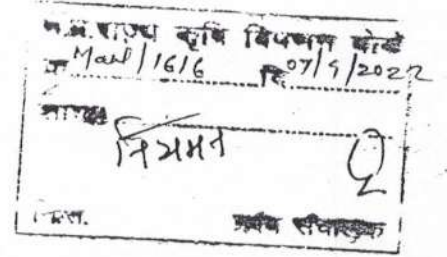 म.प्र.राज्य कृषि विपणन बोर्ड
क्र Mail/1616 दि 07/9/2022
शाखा
नियमन
प्रबंध संचालक